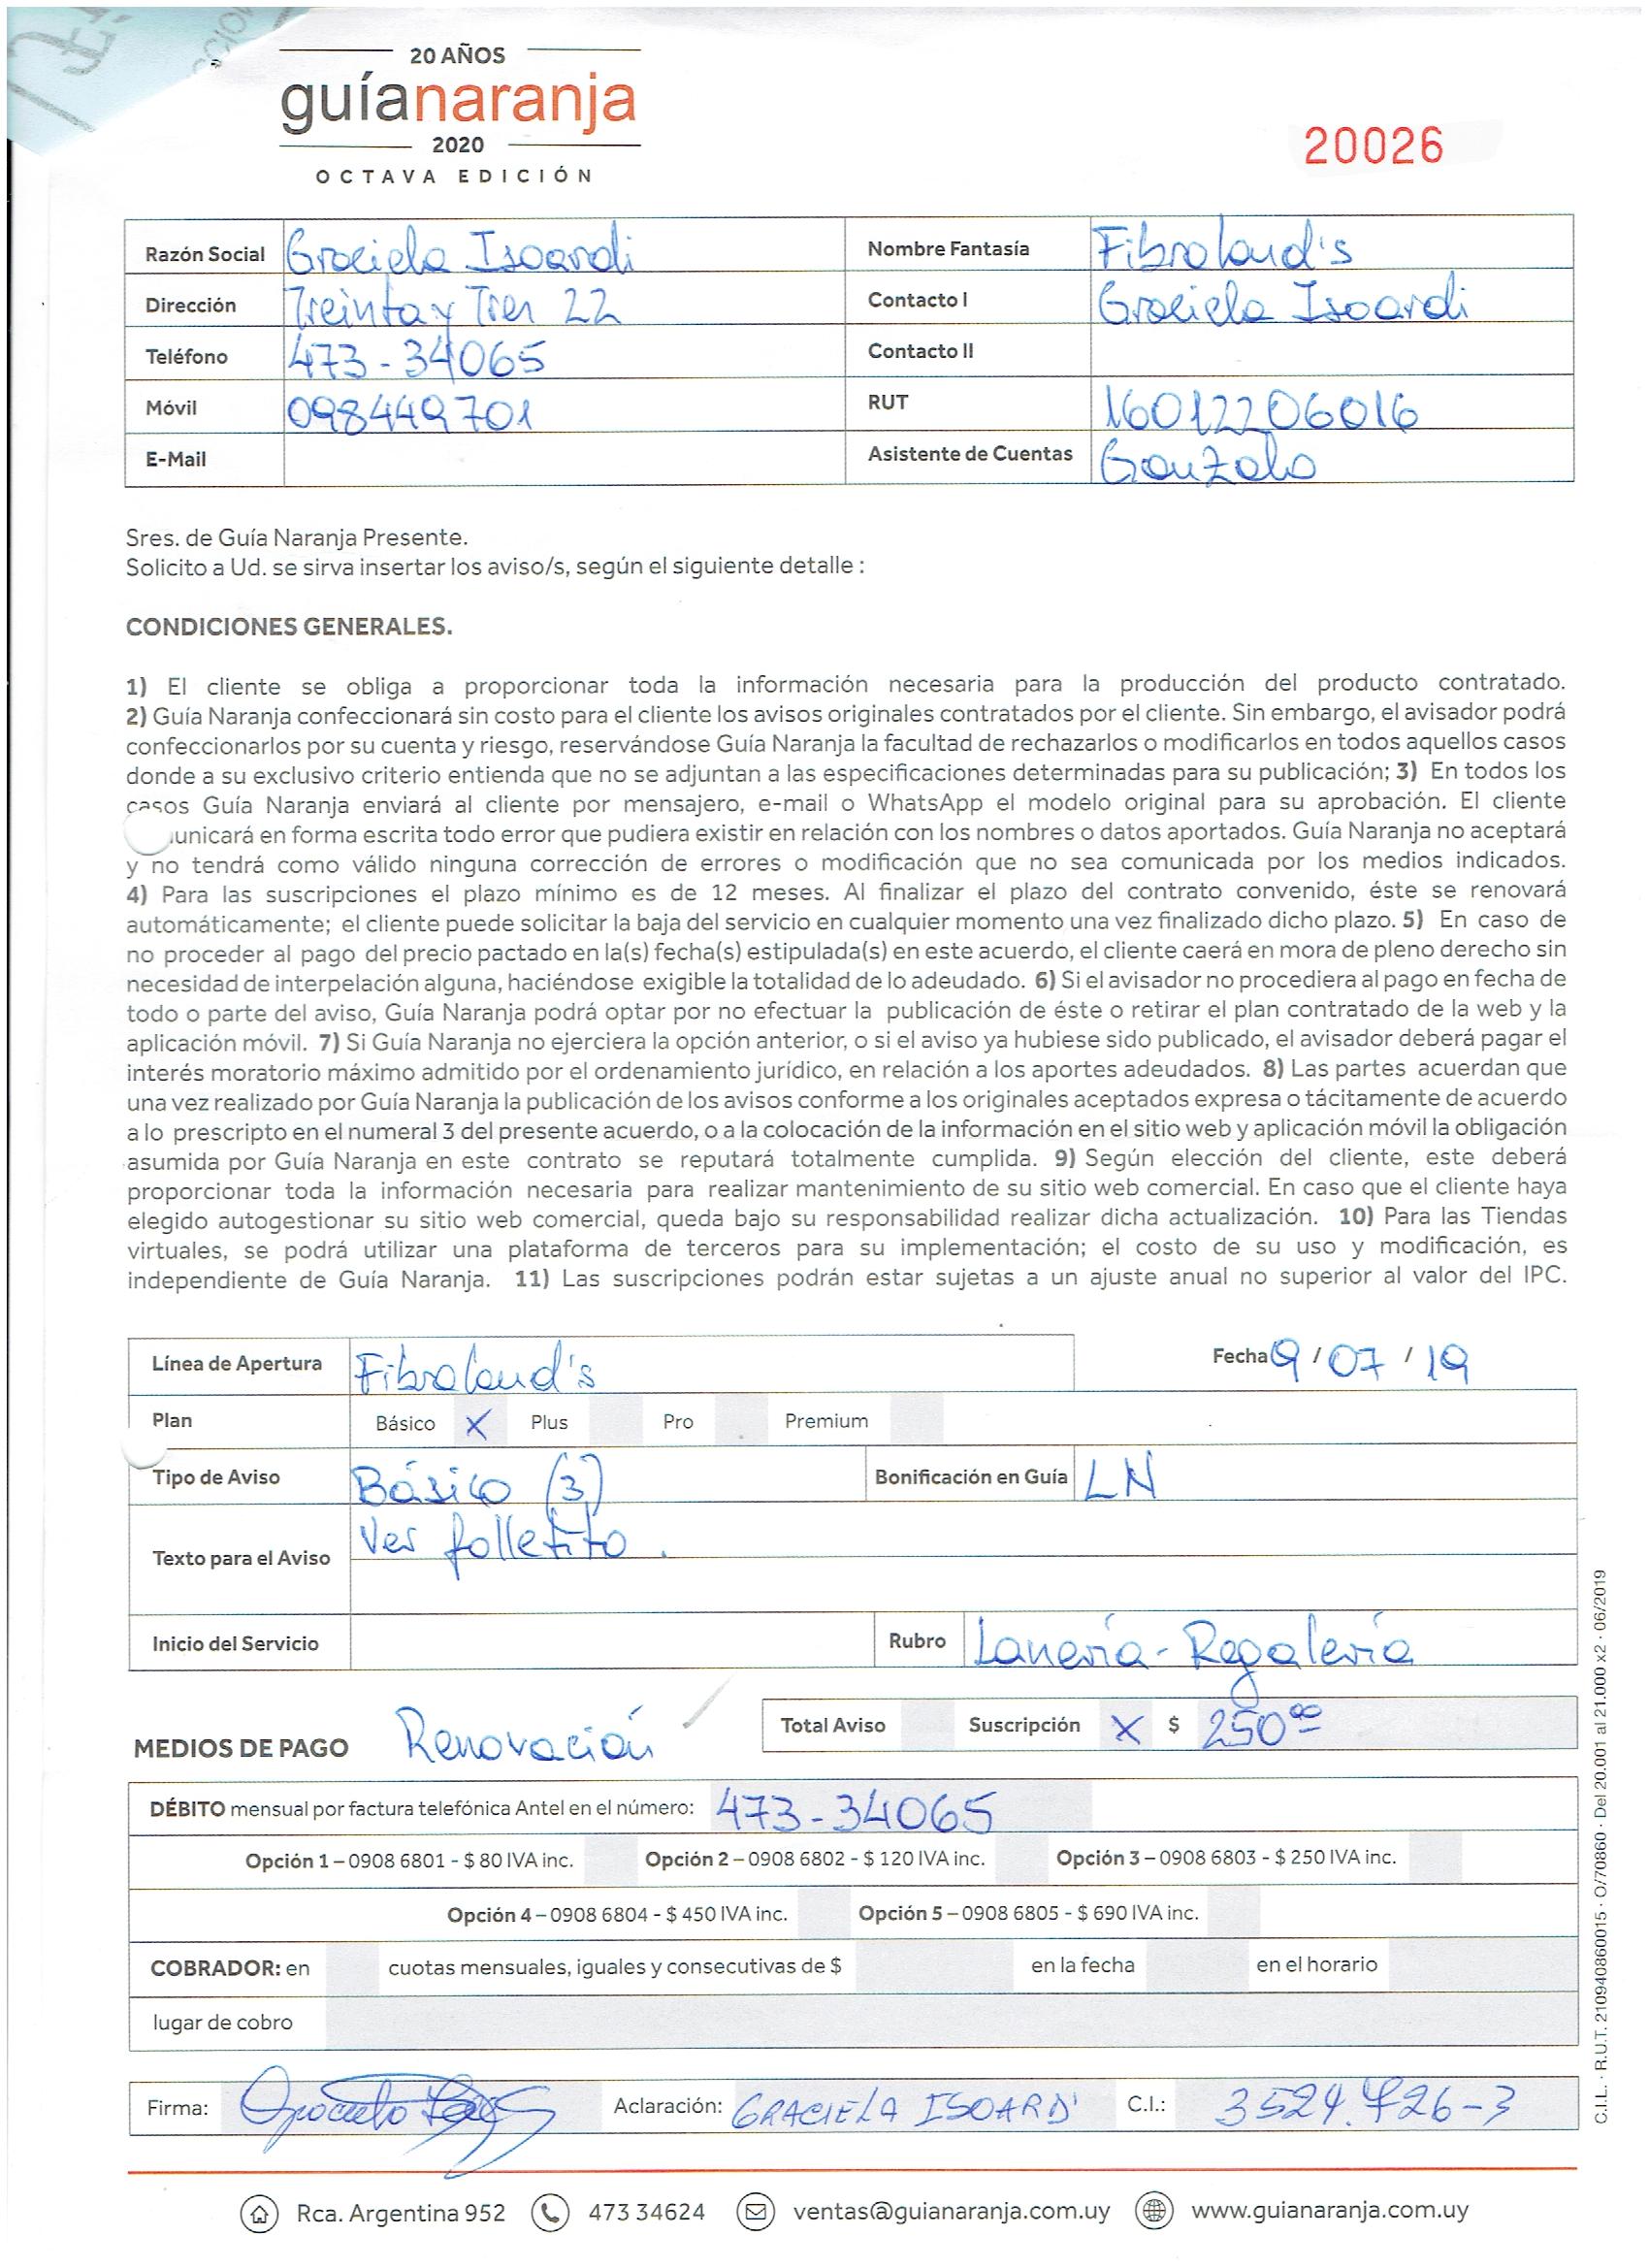 20 AÑOS
guíanaranja
2020
OCTAVA EDICIÓN
20026
Razón Social Graciela Isoardi Nombre Fantasía Fibraland's
Dirección Treinta y Tres 22 Contacto I Graciela Isoardi
Teléfono 473-34065 Contacto II
Móvil 098449701 RUT 16012206016
E-Mail Asistente de Cuentas Gonzalo
Sres. de Guía Naranja Presente.
Solicito a Ud. se sirva insertar los aviso/s, según el siguiente detalle :
CONDICIONES GENERALES.
1) El cliente se obliga a proporcionar toda la información necesaria para la producción del producto contratado.
2) Guía Naranja confeccionará sin costo para el cliente los avisos originales contratados por el cliente. Sin embargo, el avisador podrá
confeccionarlos por su cuenta y riesgo, reservándose Guía Naranja la facultad de rechazarlos o modificarlos en todos aquellos casos
donde a su exclusivo criterio entienda que no se adjuntan a las especificaciones determinadas para su publicación; 3) En todos los
casos Guía Naranja enviará al cliente por mensajero, e-mail o WhatsApp el modelo original para su aprobación. El cliente
unicará en forma escrita todo error que pudiera existir en relación con los nombres o datos aportados. Guía Naranja no aceptará
y no tendrá como válido ninguna corrección de errores o modificación que no sea comunicada por los medios indicados.
4) Para las suscripciones el plazo mínimo es de 12 meses. Al finalizar el plazo del contrato convenido, éste se renovará
automáticamente; el cliente puede solicitar la baja del servicio en cualquier momento una vez finalizado dicho plazo. 5) En caso de
no proceder al pago del precio pactado en la(s) fecha(s) estipulada(s) en este acuerdo, el cliente caerá en mora de pleno derecho sin
necesidad de interpelación alguna, haciéndose exigible la totalidad de lo adeudado. 6) Si el avisador no procediera al pago en fecha de
todo o parte del aviso, Guía Naranja podrá optar por no efectuar la publicación de éste o retirar el plan contratado de la web y la
aplicación móvil. 7) Si Guía Naranja no ejerciera la opción anterior, o si el aviso ya hubiese sido publicado, el avisador deberá pagar el
interés moratorio máximo admitido por el ordenamiento jurídico, en relación a los aportes adeudados. 8) Las partes acuerdan que
una vez realizado por Guía Naranja la publicación de los avisos conforme a los originales aceptados expresa o tácitamente de acuerdo
a lo prescripto en el numeral 3 del presente acuerdo, o a la colocación de la información en el sitio web y aplicación móvil la obligación
asumida por Guía Naranja en este contrato se reputará totalmente cumplida. 9) Según elección del cliente, este deberá
proporcionar toda la información necesaria para realizar mantenimiento de su sitio web comercial. En caso que el cliente haya
elegido autogestionar su sitio web comercial, queda bajo su responsabilidad realizar dicha actualización. 10) Para las Tiendas
virtuales, se podrá utilizar una plataforma de terceros para su implementación; el costo de su uso y modificación, es
independiente de Guía Naranja. 11) Las suscripciones podrán estar sujetas a un ajuste anual no superior al valor del IPC.
Línea de Apertura Fibraland's Fecha 9 / 07 / 19
Plan Básico X Plus Pro Premium
Tipo de Aviso Básico (3) Bonificación en Guía LN
Texto para el Aviso Ver folletito.
Inicio del Servicio Rubro Lanería - Regalería
MEDIOS DE PAGO Renovación Total Aviso Suscripción X $ 250⁰⁰
DÉBITO mensual por factura telefónica Antel en el número: 473-34065
Opción 1 – 0908 6801 - $ 80 IVA inc. Opción 2 – 0908 6802 - $ 120 IVA inc. Opción 3 – 0908 6803 - $ 250 IVA inc.
Opción 4 – 0908 6804 - $ 450 IVA inc. Opción 5 – 0908 6805 - $ 690 IVA inc.
COBRADOR: en cuotas mensuales, iguales y consecutivas de $ en la fecha en el horario
lugar de cobro
Firma: Aclaración: GRACIELA ISOARDI C.I.: 3524.726-3
Rca. Argentina 952 473 34624 ventas@guianaranja.com.uy www.guianaranja.com.uy
C.I.L. · R.U.T. 210940860015 · O/70860 · Del 20.001 al 21.000 x2 · 06/2019